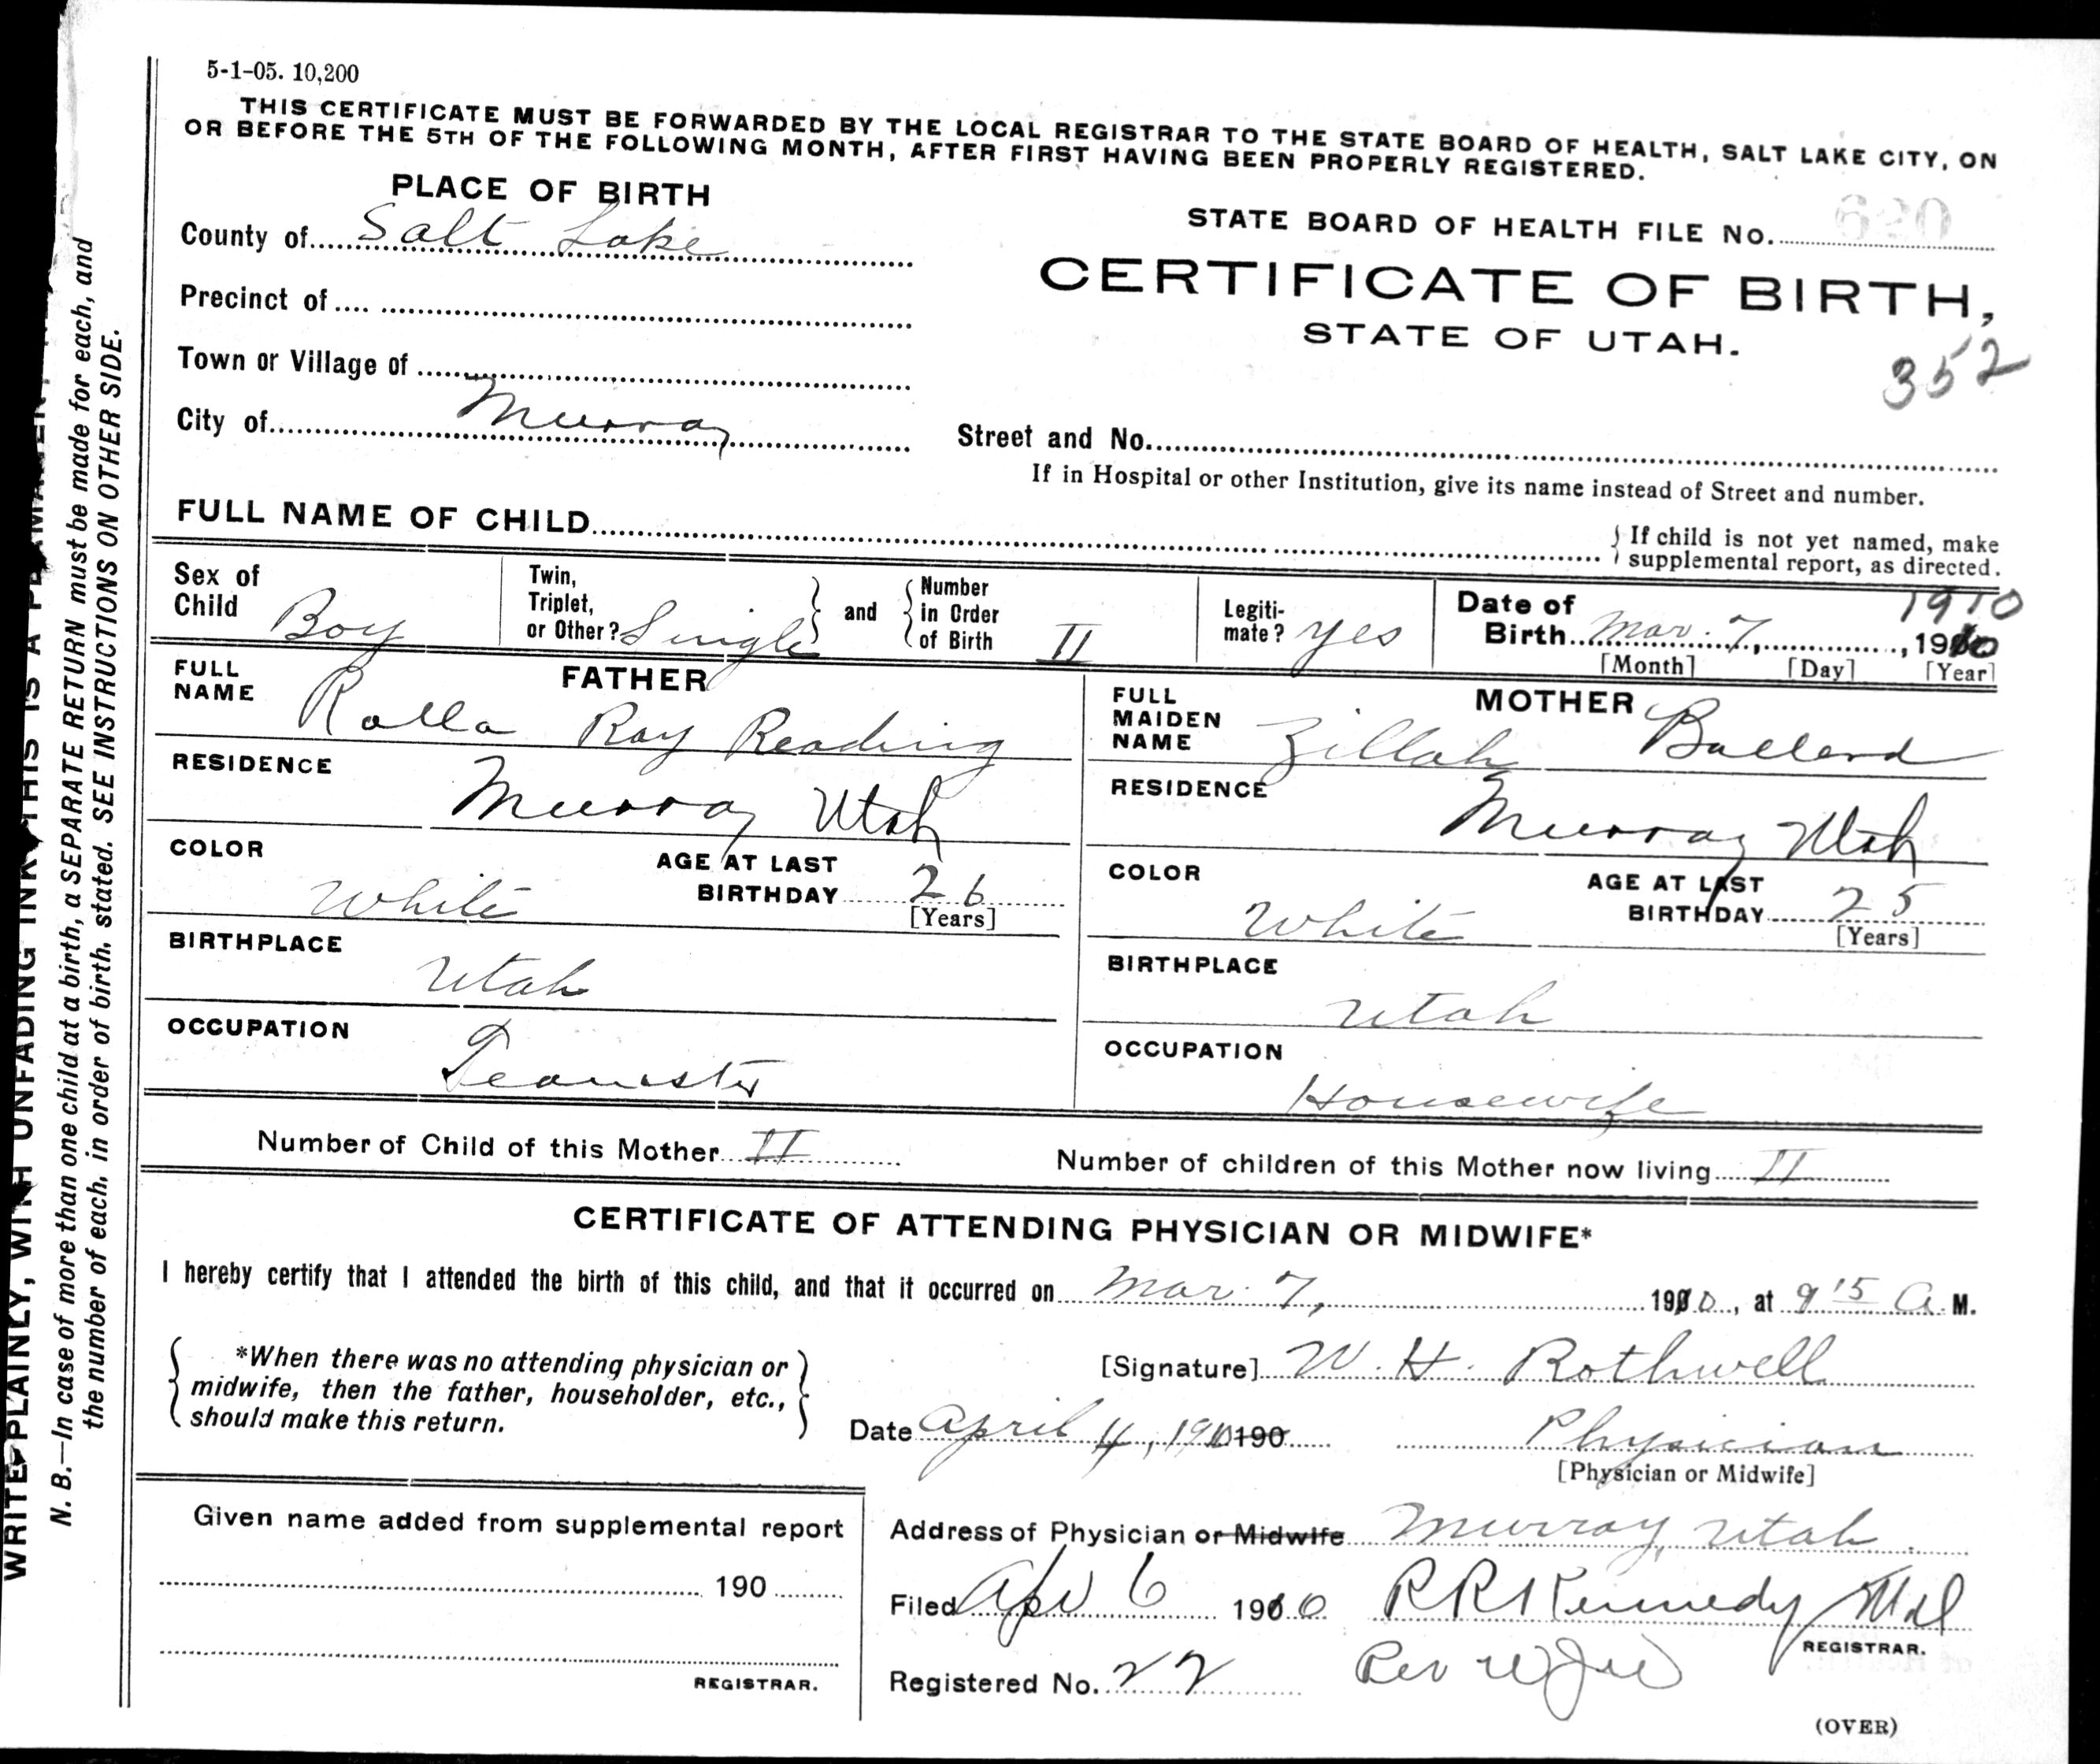 5-1-05. 10,200
THIS CERTIFICATE MUST BE FORWARDED BY THE LOCAL REGISTRAR TO THE STATE BOARD OF HEALTH, SALT LAKE CITY, ON
OR BEFORE THE 5TH OF THE FOLLOWING MONTH, AFTER FIRST HAVING BEEN PROPERLY REGISTERED.
PLACE OF BIRTH
County of Salt Lake
Precinct of
Town or Village of
City of Murray
STATE BOARD OF HEALTH FILE No. 620
CERTIFICATE OF BIRTH,
STATE OF UTAH.
352
Street and No.
If in Hospital or other Institution, give its name instead of Street and number.
FULL NAME OF CHILD
If child is not yet named, make
supplemental report, as directed.
Sex of
Child Boy
Twin,
Triplet,
or Other? Single
and
Number
in Order
of Birth II
Legiti-
mate? yes
1910
Date of
Birth Mar. 7, , 1910
[Month] [Day] [Year]
FATHER
FULL
NAME Rolla Ray Reading
RESIDENCE
Murray Utah
COLOR
White
AGE AT LAST
BIRTHDAY 26
[Years]
BIRTHPLACE
Utah
OCCUPATION
Teamster
MOTHER
FULL
MAIDEN
NAME Zillah Ballard
RESIDENCE
Murray Utah
COLOR
White
AGE AT LAST
BIRTHDAY 25
[Years]
BIRTHPLACE
Utah
OCCUPATION
Housewife
Number of Child of this Mother II
Number of children of this Mother now living II
CERTIFICATE OF ATTENDING PHYSICIAN OR MIDWIFE*
I hereby certify that I attended the birth of this child, and that it occurred on Mar. 7, 1910, at 9 15 A. M.
*When there was no attending physician or
midwife, then the father, householder, etc.,
should make this return.
[Signature] W. H. Rothwell
Date April 4, 1910 190
Physician
[Physician or Midwife]
Given name added from supplemental report
190
REGISTRAR.
Address of Physician or Midwife Murray, Utah.
Filed Apr 6 1910 R R Kennedy Md
REGISTRAR.
Registered No. 22
(OVER)
WRITE PLAINLY, WITH UNFADING INK THIS IS A
N. B.—In case of more than one child at a birth, a SEPARATE RETURN must be made for each, and
the number of each, in order of birth, stated. SEE INSTRUCTIONS ON OTHER SIDE.